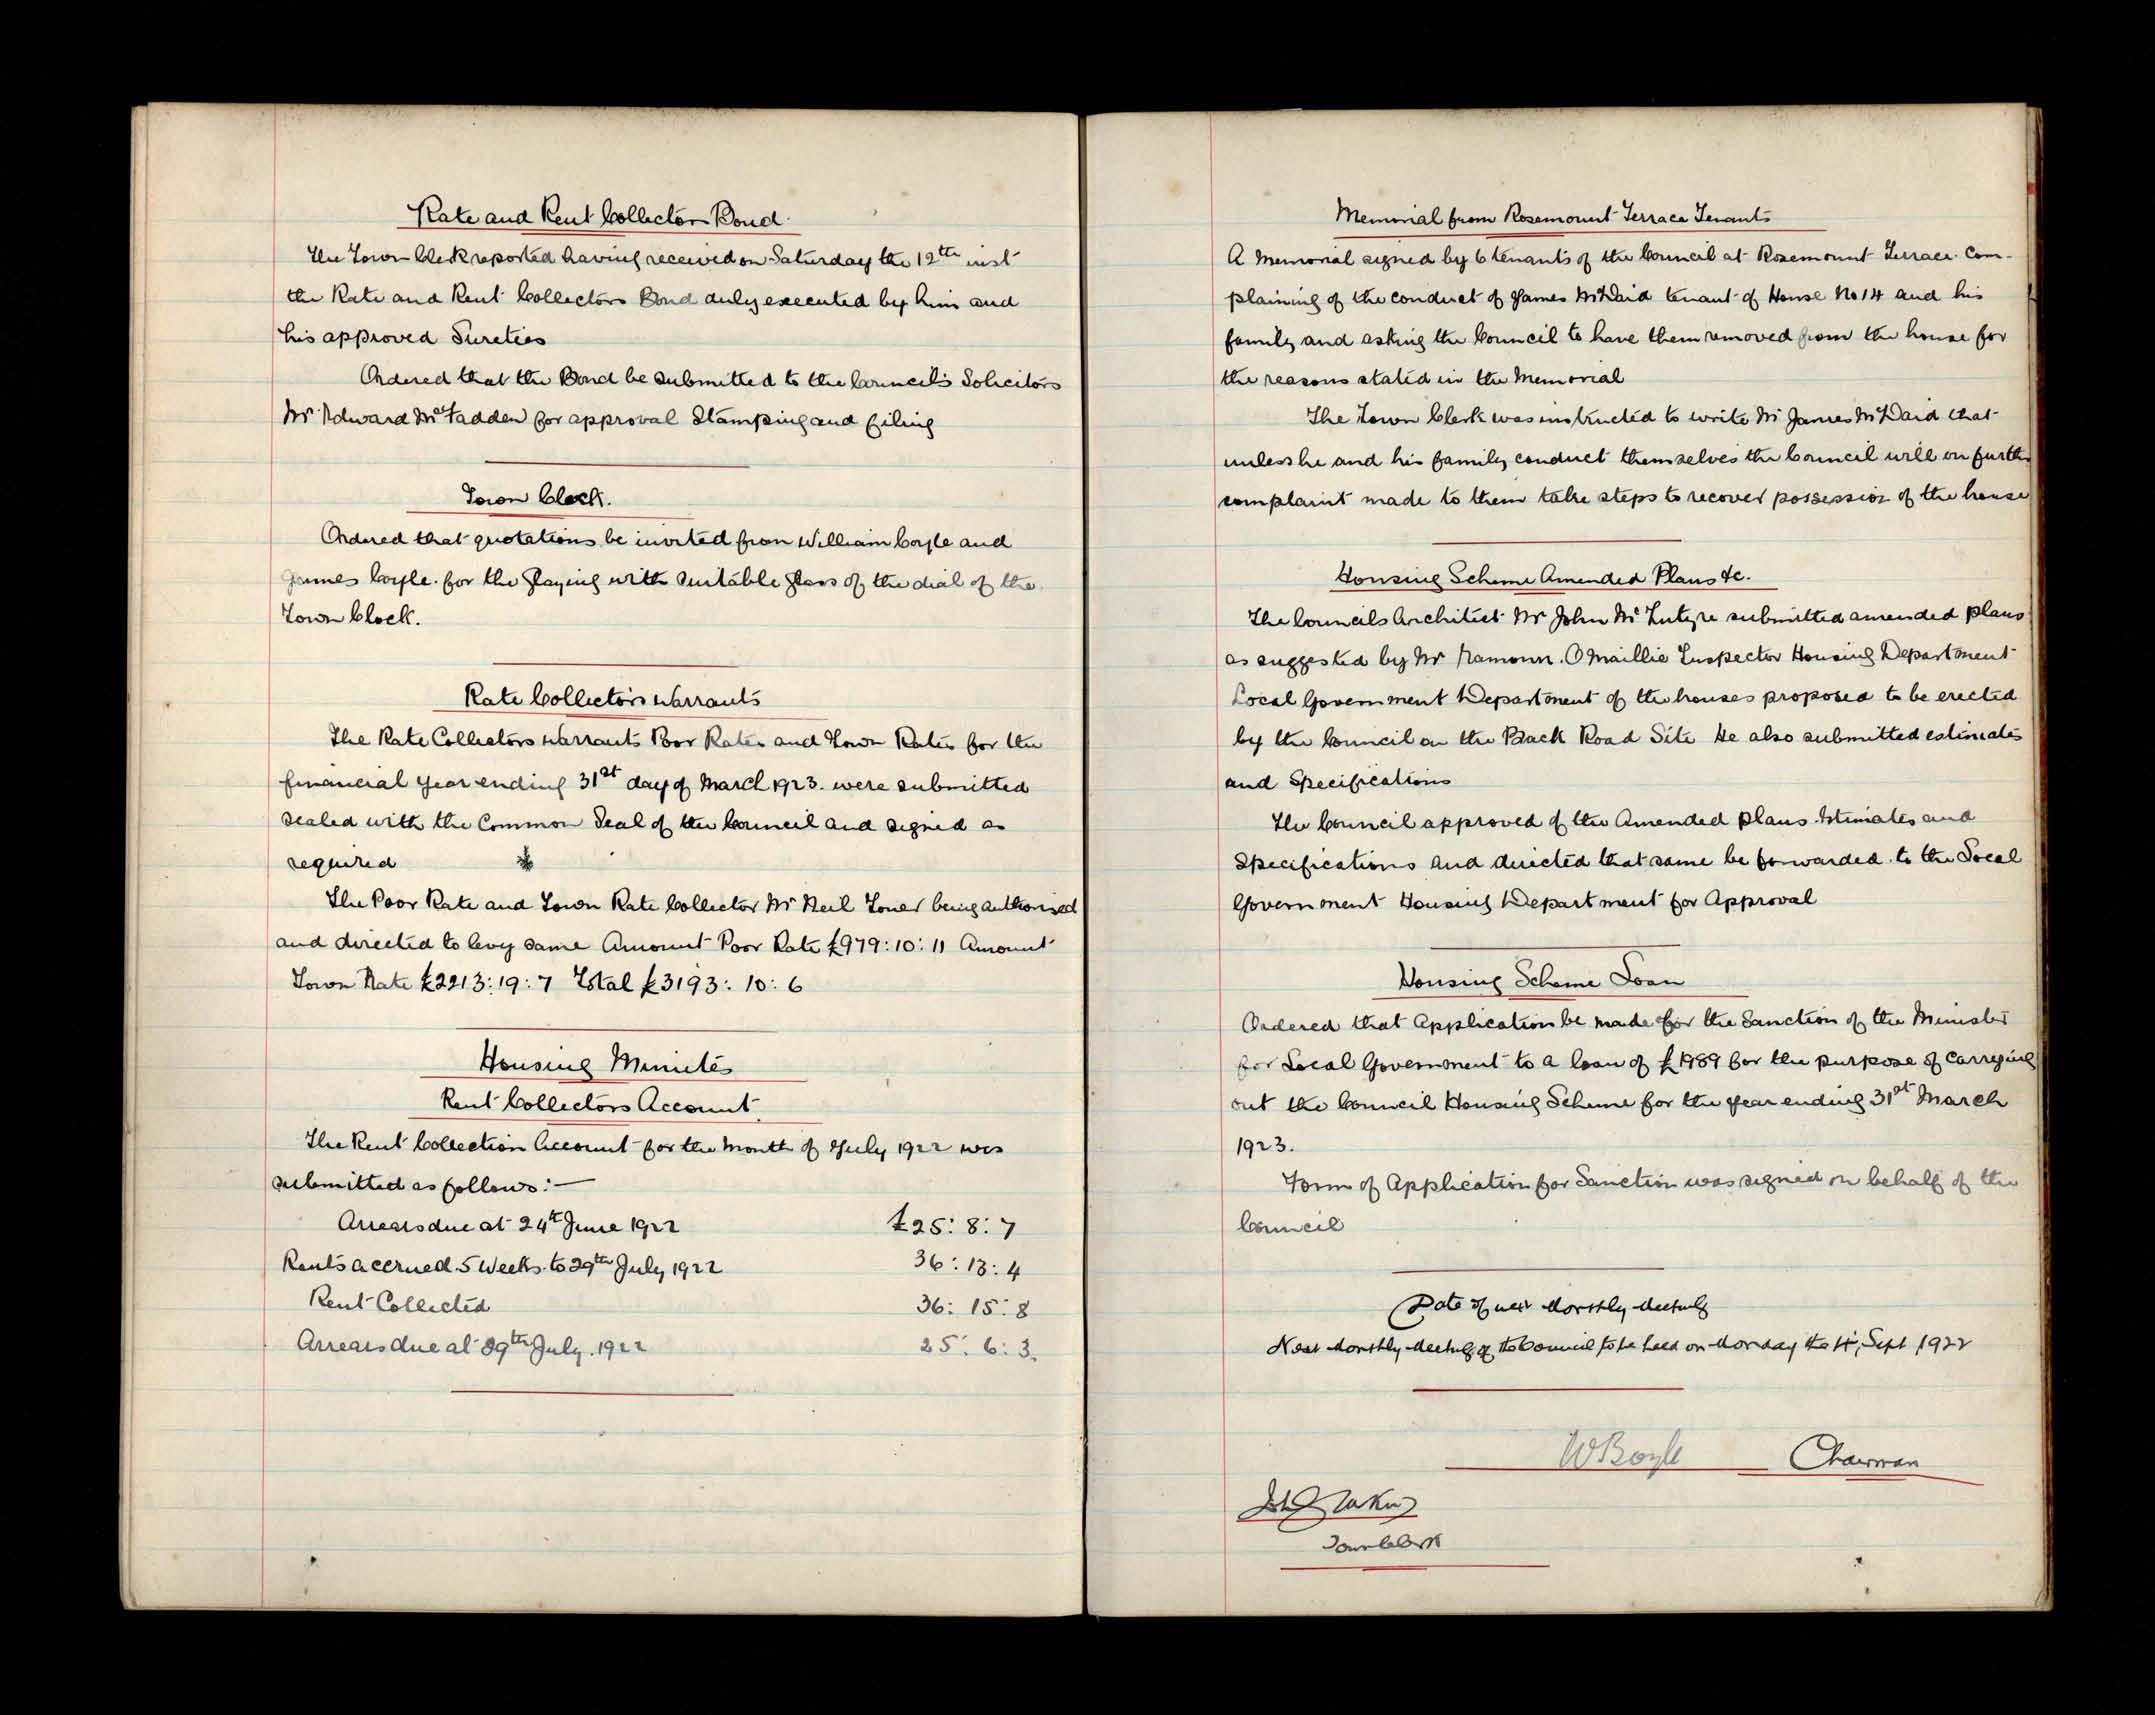 Rate and Rent Collectors Bond
The Town Clerk reported having received on Saturday the 12th inst
the Rate and Rent Collectors Bond duly executed by him and
his approved Sureties
Ordered that the Bond be submitted to the Council's Solicitors
Mr Edward McFadden for approval Stamping and filing
Town Clock.
Ordered that quotations be invited from William Coyle and
James Coyle. for the glazing with suitable glass of the dial of the
Town Clock.
Rate Collector's Warrants
The Rate Collectors Warrants Poor Rates and Town Rates for the
financial year ending 31st day of March 1923. were submitted
sealed with the Common Seal of the Council and signed as
required
The Poor Rate and Town Rate Collector Mr Neil Toner being authorised
and directed to levy same Amount Poor Rate £979:10:11 Amount
Town Rate £2213:19:7 Total £3193:10:6
Housing Minutes
Rent Collectors Account
The Rent Collection Account for the Month of July 1922 was
submitted as follows:-
Arrears due at 24th June 1922 £25:8:7
Rents accrued 5 Weeks to 29th July 1922 36:13:4
Rent Collected 36:15:8
Arrears due at 29th July. 1922 25:6:3.
Memorial from Rosemount Terrace Tenants
A Memorial signed by 6 tenants of the Council at Rosemount Terrace Com-
plaining of the conduct of James McDaid tenant of House No 14 and his
family and asking the Council to have them removed from the house for
the reasons stated in the Memorial
The Town Clerk was instructed to write Mr James McDaid that
unless he and his family conduct themselves the Council will on further
complaint made to them take steps to recover possession of the house
Housing Scheme Amended Plans &c.
The Councils Architect Mr John McIntyre submitted amended plans
as suggested by Mr Eamonn. O Maillie Inspector Housing Department
Local Government Department of the houses proposed to be erected
by the Council on the Back Road Site He also submitted estimates
and Specifications
The Council approved of the Amended plans Estimates and
Specifications and directed that same be forwarded to the Local
Government Housing Department for Approval
Housing Scheme Loan
Ordered that Application be made for the Sanction of the Minister
for Local Government to a loan of £1989 for the purpose of carrying
out the Council Housing Scheme for the year ending 31st March
1923.
Form of Application for Sanction was signed on behalf of the
Council
Date of next Monthly Meeting
Next Monthly Meeting of the Council to be held on Monday the 4th, Sept 1922
W Boyle Chairman
Town Clerk